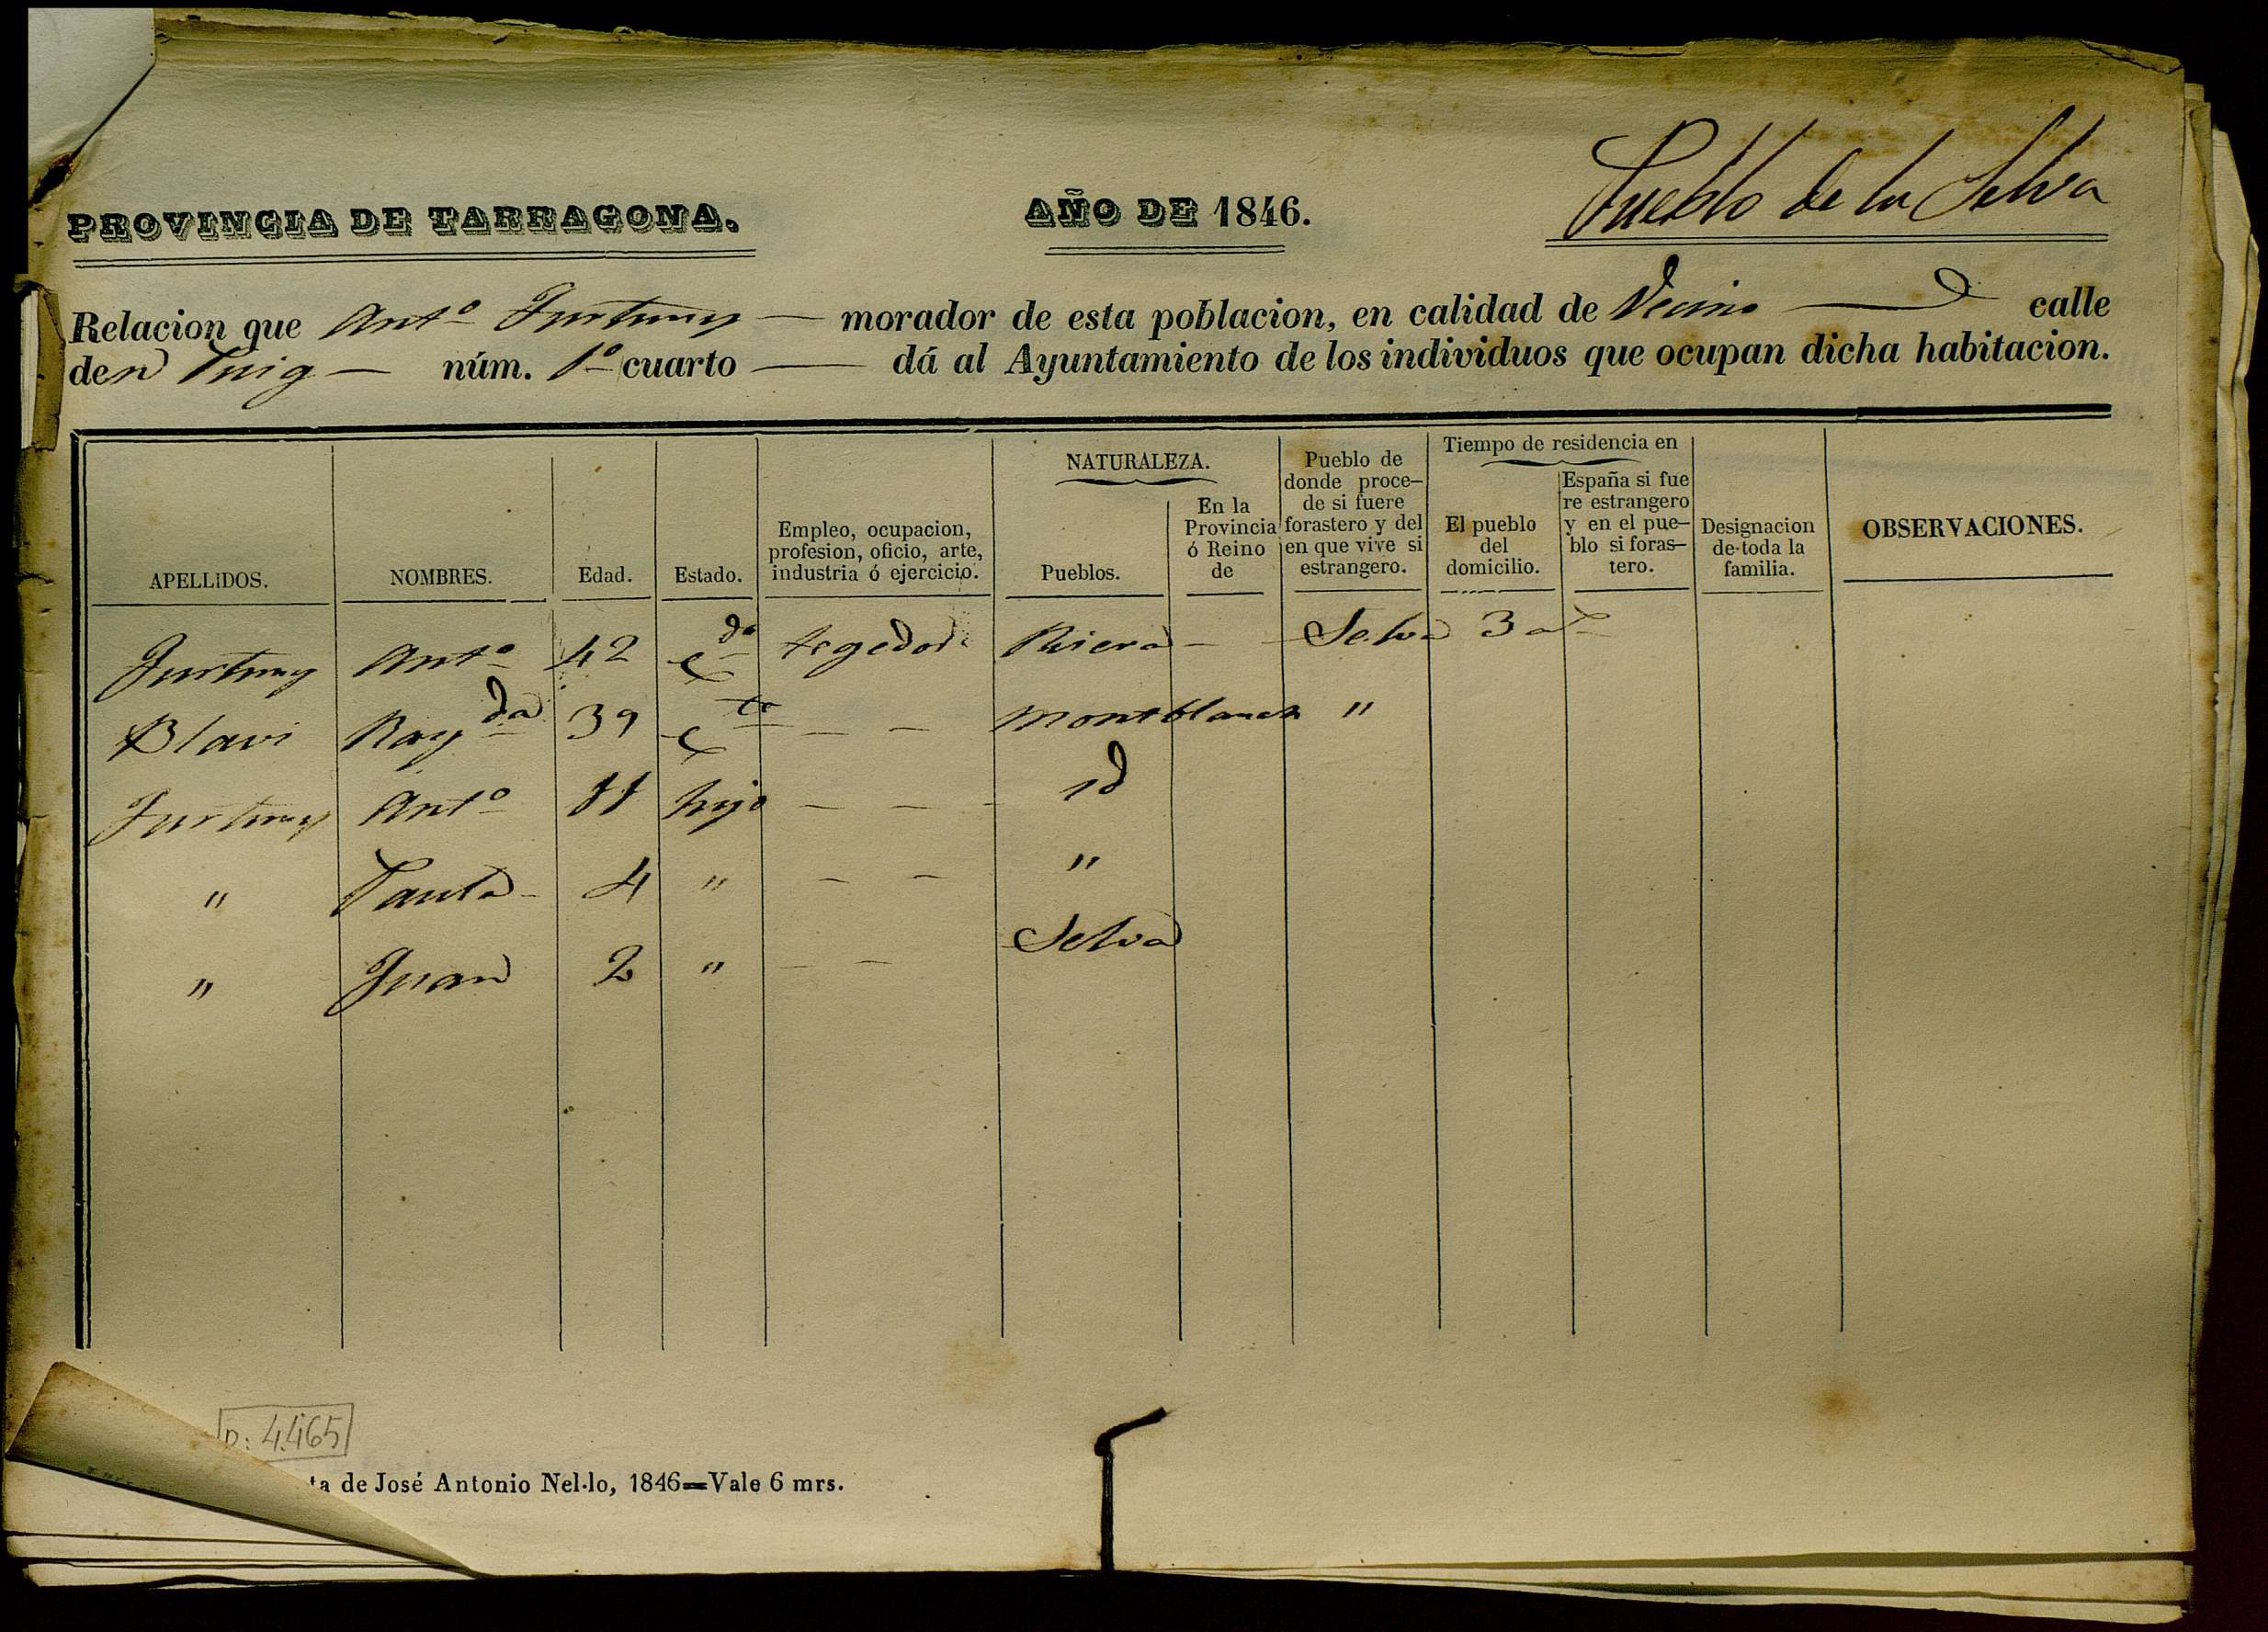 PROVINCIA DE TARRAGONA. AÑO DE 1846. Pueblo de la Selva
Relacion que Antº Furtuny — morador de esta poblacion, en calidad de Vecino — calle
den Puig — núm. 1º cuarto — dá al Ayuntamiento de los individuos que ocupan dicha habitacion.
APELLIDOS.
NOMBRES.
Edad.
Estado.
Empleo, ocupacion,
profesion, oficio, arte,
industria ó ejercicio.
NATURALEZA.
Pueblos.
En la
Provincia
ó Reino
de
Pueblo de
donde proce-
de si fuere
forastero y del
en que vive si
estrangero.
Tiempo de residencia en
El pueblo
del
domicilio.
España si fue
re estrangero
y en el pue-
blo si foras-
tero.
Designacion
de toda la
familia.
OBSERVACIONES.
Furtuny Antº 42 cdo tegedor Riera — Selva 3 as
Blavi Rayda 39 cta — — Montblanch "
Furtuny Antº 11 hijo — — id
" Paula 4 " — — "
" Juan 2 " — — Selva
D: 4.465
ta de José Antonio Nel·lo, 1846=Vale 6 mrs.